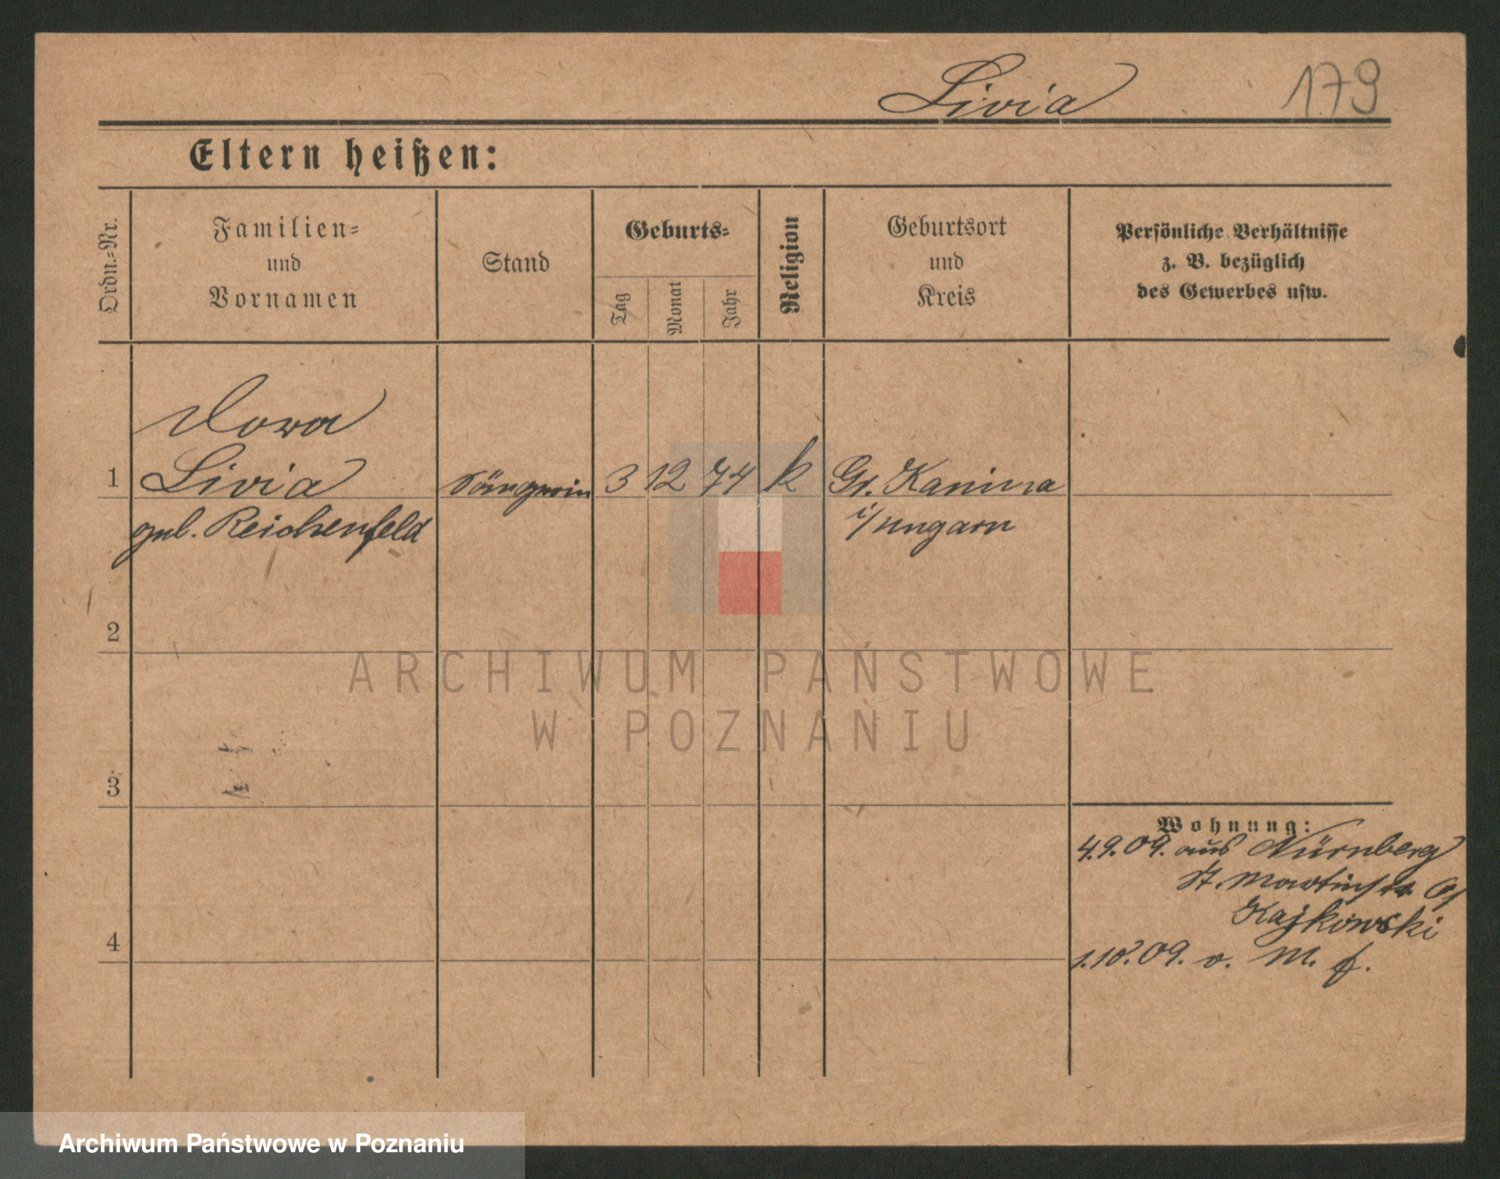 Livia 179
Eltern heißen:
Ordn.-Nr.
Familien-
und
Vornamen
Stand
Geburts-
Tag
Monat
Jahr
Religion
Geburtsort
und
Kreis
Persönliche Verhältnisse
z. B. bezüglich
des Gewerbes usw.
Dora
1 Livia Sängerin 3 12 74 k Gr. Kanina
geb. Reichenfeld i/Ungarn
2
ARCHIWUM PAŃSTWOWE
W POZNANIU
3
Wohnung:
4.9.09. aus Nürnberg
St. Martinstr
Kajkowski
4
1.10.09. v. M. f.
Archiwum Państwowe w Poznaniu